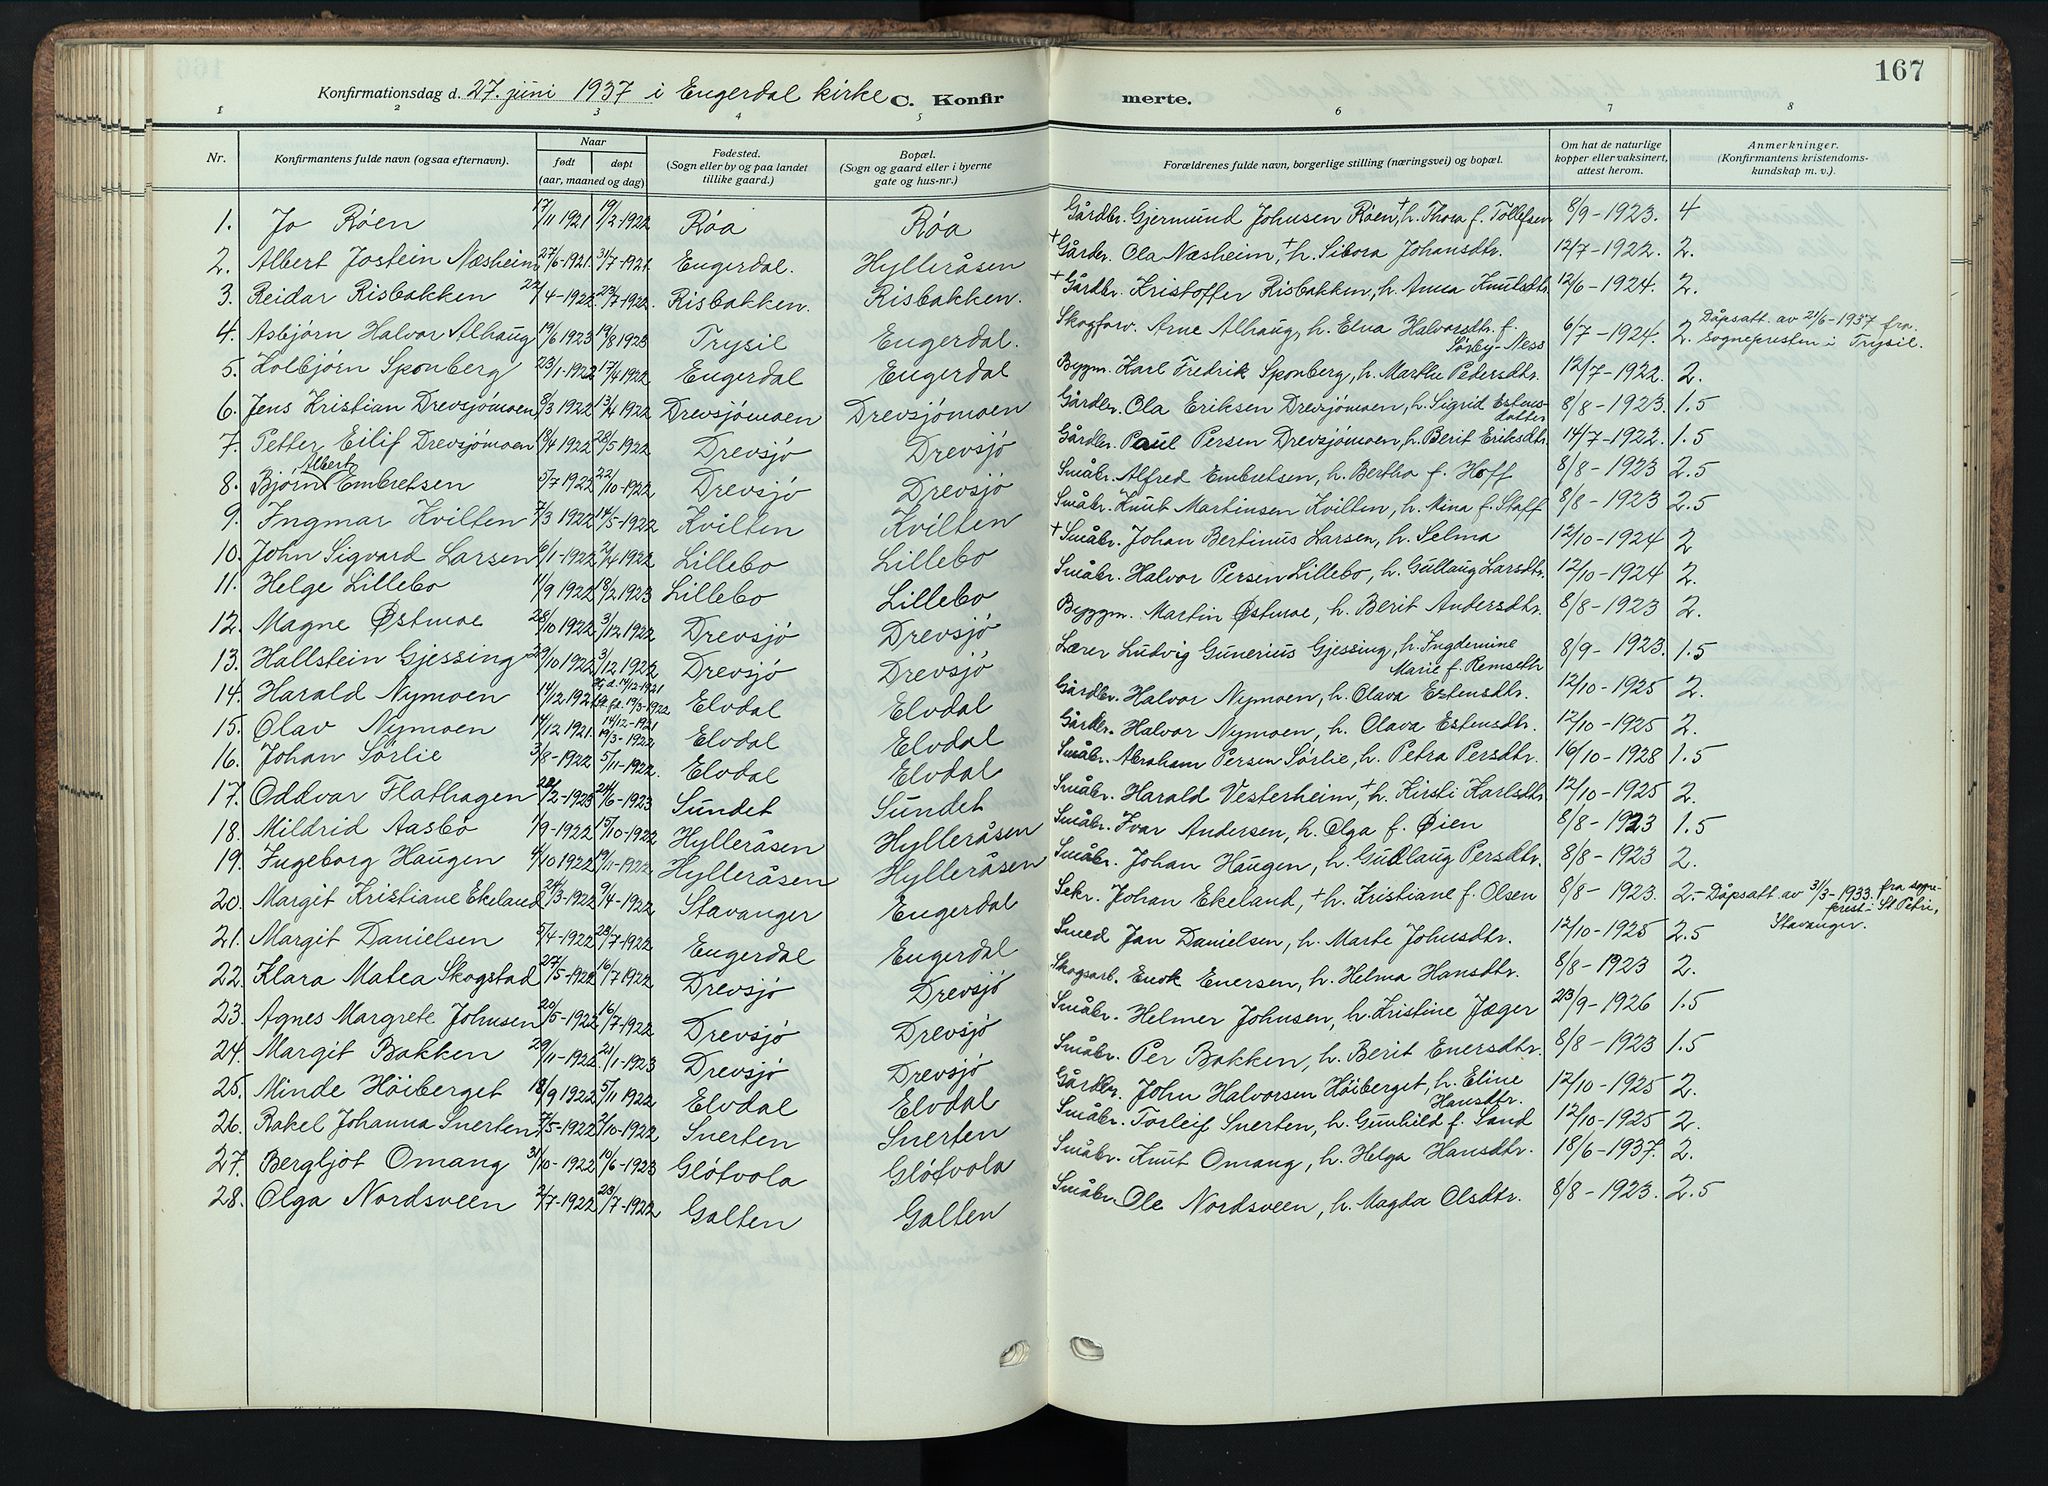 167
Konfirmationsdag d. 27. juni 1937 i Engerdal kirke C. Konfirmerte.
1 2 3 4 5 6 7 8
Nr. Konfirmantens fulde navn (ogsaa efternavn). Naar født døpt (aar, maaned og dag) Fødested. (Sogn eller by og paa landet tillike gaard.) Bopæl. (Sogn og gaard eller i byerne gate og hus-nr.) Forældrenes fulde navn, borgerlige stilling (næringsvei) og bopæl. Om hat de naturlige kopper eller vaksinert, attest herom. Anmerkninger. (Konfirmantens kristendoms-kundskap m. v.).
1. Jo Røen 17/11 1921 19/2-1922 Røa Røa Gårdbr. Gjermund Johnsen Røen, + h. Thora f. Tollefsen 8/9-1923. 4
2. Albert Jostein Næsheim 27/6-1921. 31/7-1921. Engerdal. Hylleråsen + Gårdbr. Ola Næsheim, + h. Sibora Johansdtr. 12/7-1922. 2.
3. Reidar Risbakken 22/4-1922 23/7-1922. Risbakken. Risbakken. + Gårdbr. Kristoffer Risbakken, h. Anna Knutsdtr. 12/6-1924. 2.
4. Asbjørn Halvor Alhaug 19/6 1923 19/8 1923 Trysil Engerdal. Skogforv. Arne Alhaug, h. Elna Halvorsdtr. f. Sørby-Ness 6/7-1924. 2. Dåpsatt. av 21/6-1937 fra sognepresten i Trysil.
5. Kolbjørn Sponberg 23/1-1922 17/4 1922 Engerdal Engerdal Byggm. Karl Fredrik Sponberg, h. Marthe Pedersdtr. 12/7-1922. 2.
6. Jens Kristian Drevsjømoen 8/3 1922 13/4 1922 Drevsjømoen Drevsjømoen Gårdbr. Ola Eriksen Drevsjømoen, h. Sigrid Estensdatter 8/8-1923. 1.5
7. Petter Eilif Drevsjømoen 19/4 1922 28/5 1922 Drevsjø Drevsjø Gårdbr. Paul Persen Drevsjømoen, h. Berit Eriksdtr. 14/7-1922. 1.5
8. Bjørn Albert Embretsen 5/7 1922 22/10-1922 Drevsjø Drevsjø Småbr. Alfred Embretsen, h. Bertha f. Hoff 8/8-1923 2.5
9. Ingmar Kvilten 7/3 1922 14/5-1922 Kvilten Kvilten Småbr. Knut Martinsen Kvilten, h. Nina f. Staff 8/8-1923 2.5
10. John Sigvard Larsen 6/1-1922 2/4 1922 Lillebo Lillebo + Småbr. Johan Bertinus Larsen, h. Selma 12/10-1924 2
11. Helge Lillebo 11/9 1922 18/2 1923 Lillebo Lillebo Småbr. Halvor Persen Lillebo, h. Gullaug Larsdtr. 12/10-1924 2.
12. Magne Østmoe 28/10 1922 3/12 1922 Drevsjø Drevsjø Byggm. Martin Østmoe, h. Berit Andersdtr. 8/8-1923 2.
13. Hallstein Gjessing 29/10 1922 3/12 1922 Drevsjø Drevsjø Lærer Ludvig Gunerius Gjessing, h. Ingdemine Marie f. Remseth 8/9-1923. 1.5
14. Harald Nymoen 14/12 1921 14/12-1921 19/3-1922 Elvdal Elvdal Gårdbr. Halvor Nymoen, h. Olava Estensdtr. 12/10-1925 2.
15. Olav Nymoen 14/12 1921. 14/12-1921 19/3-1922 Elvdal Elvdal Gårdbr. Halvor Nymoen, h. Olava Estensdtr. 12/10-1925 2.
16. Johan Sørlie 31/8-1922 5/11-1922. Elvdal Elvdal Småbr. Abraham Persen Sørlie, h. Petra Persdtr. 16/10-1928 1.5
17. Oddvar Flathagen 22/2-1923 24/6-1923 Sundet Sundet Småbr. Harald Vesterheim, + h. Kirsti Karlsdtr. 12/10-1925 2.
18. Mildrid Aasbø 1/9-1922 15/10-1922 Hylleråsen Hylleråsen Småbr. Ivar Andersen, h. Olga f. Øien 8/8-1923 1.5
19. Ingeborg Haugen 4/10 1922 19/11-1922 Hylleråsen Hylleråsen Småbr. Johan Haugen, h. Gudlaug Persdtr. 8/8-1923 2.
20. Margit Kristiane Ekeland 24/3-1922 9/4-1922 Stavanger Engerdal Sekr. Johan Ekeland, + h. Kristiane f. Olsen 8/8-1923. 2.- Dåpsatt av 31/3-1933 fra sogneprest i St. Petri, Stavanger.
21. Margit Danielsen 5/4-1922 23/7-1922 Engerdal Engerdal Smed Jan Danielsen, h. Marte Johnsdtr. 12/10-1925 2.5
22. Klara Matea Skogstad 27/5-1922 16/7 1922 Drevsjø Drevsjø Skogsarb. Enok Enersen, h. Helma Hansdtr. 8/8-1923 2.
23. Agnes Margrete Johnsen 20/5-1922 16/7-1922 Drevsjø Drevsjø Småbr. Helmer Johnsen, h. Kristine Jæger 23/9-1926 1.5
24. Margit Bakken 29/11-1922 21/1-1923 Drevsjø Drevsjø Småbr. Per Bakken, h. Berit Enersdtr. 8/8-1923 1.5
25. Minde Høiberget 18/9 1922 5/11 1922 Elvdal Elvdal Gårdbr. John Halvorsen Høiberget, h. Eline Hansdtr. 12/10-1925 2.
26. Rakel Johanna Snerten 7/5-1922 2/10-1922 Snerten Snerten Småbr. Torleif Snerten, h. Gunhild f. Sand 12/10-1925 2.
27. Bergljot Omang 31/10-1922 10/6-1923 Gløtvola Gløtvola Småbr. Knut Omang, h. Helga Hansdtr. 18/6-1937. 2.
28. Olga Nordsveen 2/7-1922 23/7-1922 Galten Galten Småbr. Ole Nordsveen, h. Magda Olsdtr. 8/8-1923. 2.5